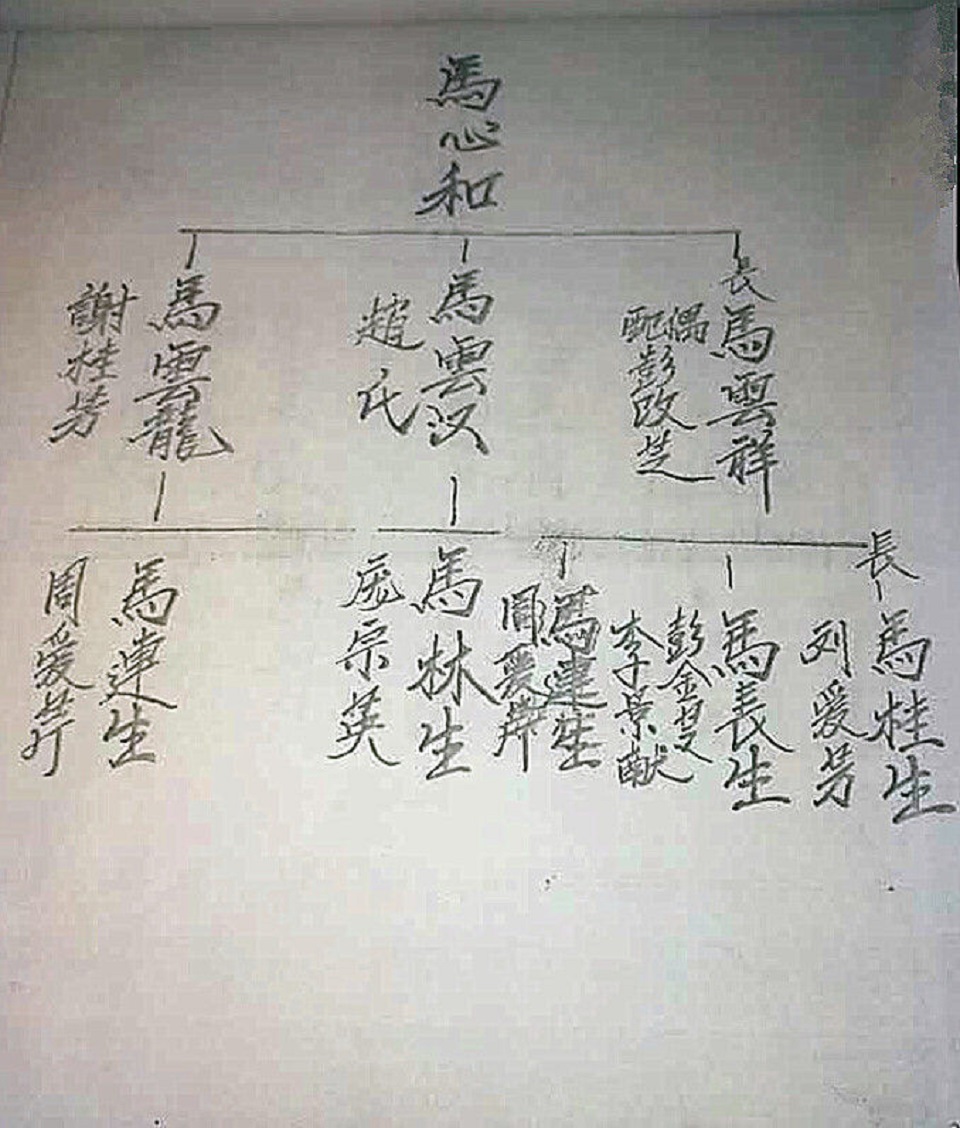 馬心和
長
馬雲祥
配偶
彭改芝
馬雲汉
趙氏
馬雲龍
謝桂芳
長
馬桂生
刘爱芳
馬長生
彭金
李景献
馬蓮生
周爱
馬林生
庞宗英
馬蓮生
周爱芹